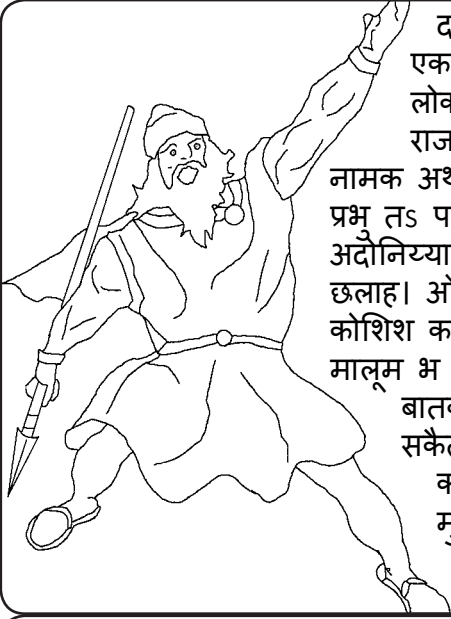 द
एक
लोक
राज
नामक अथ
प्रभु तs प
अदोनिय्या
छलाह। ओ
कोशिश क
मालूम भ
बातक
सकैत
क
मु